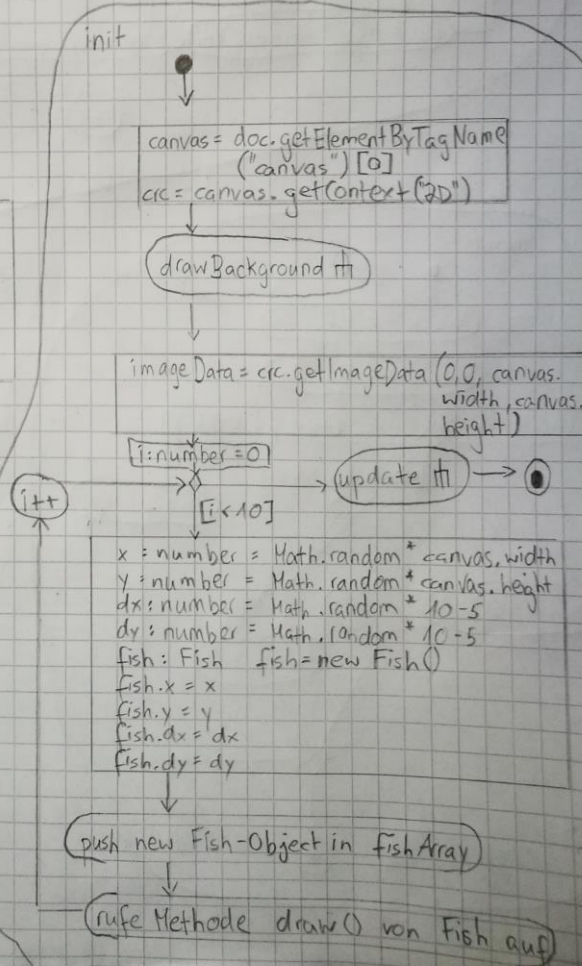 init
canvas = doc.getElementByTagName
("canvas")[0]
crc = canvas.getContext("2D")
drawBackground
imageData = crc.getImageData (0,0, canvas.
width, canvas.
height)
i:number = 0
update
i++
[i<10]
x : number = Math.random * canvas.width
y : number = Math.random * canvas.height
dx : number = Math.random * 10-5
dy : number = Math.random * 10-5
fish : Fish fish = new Fish()
fish.x = x
fish.y = y
fish.dx = dx
fish.dy = dy
push new Fish-Object in fishArray
rufe Methode draw() von Fish auf